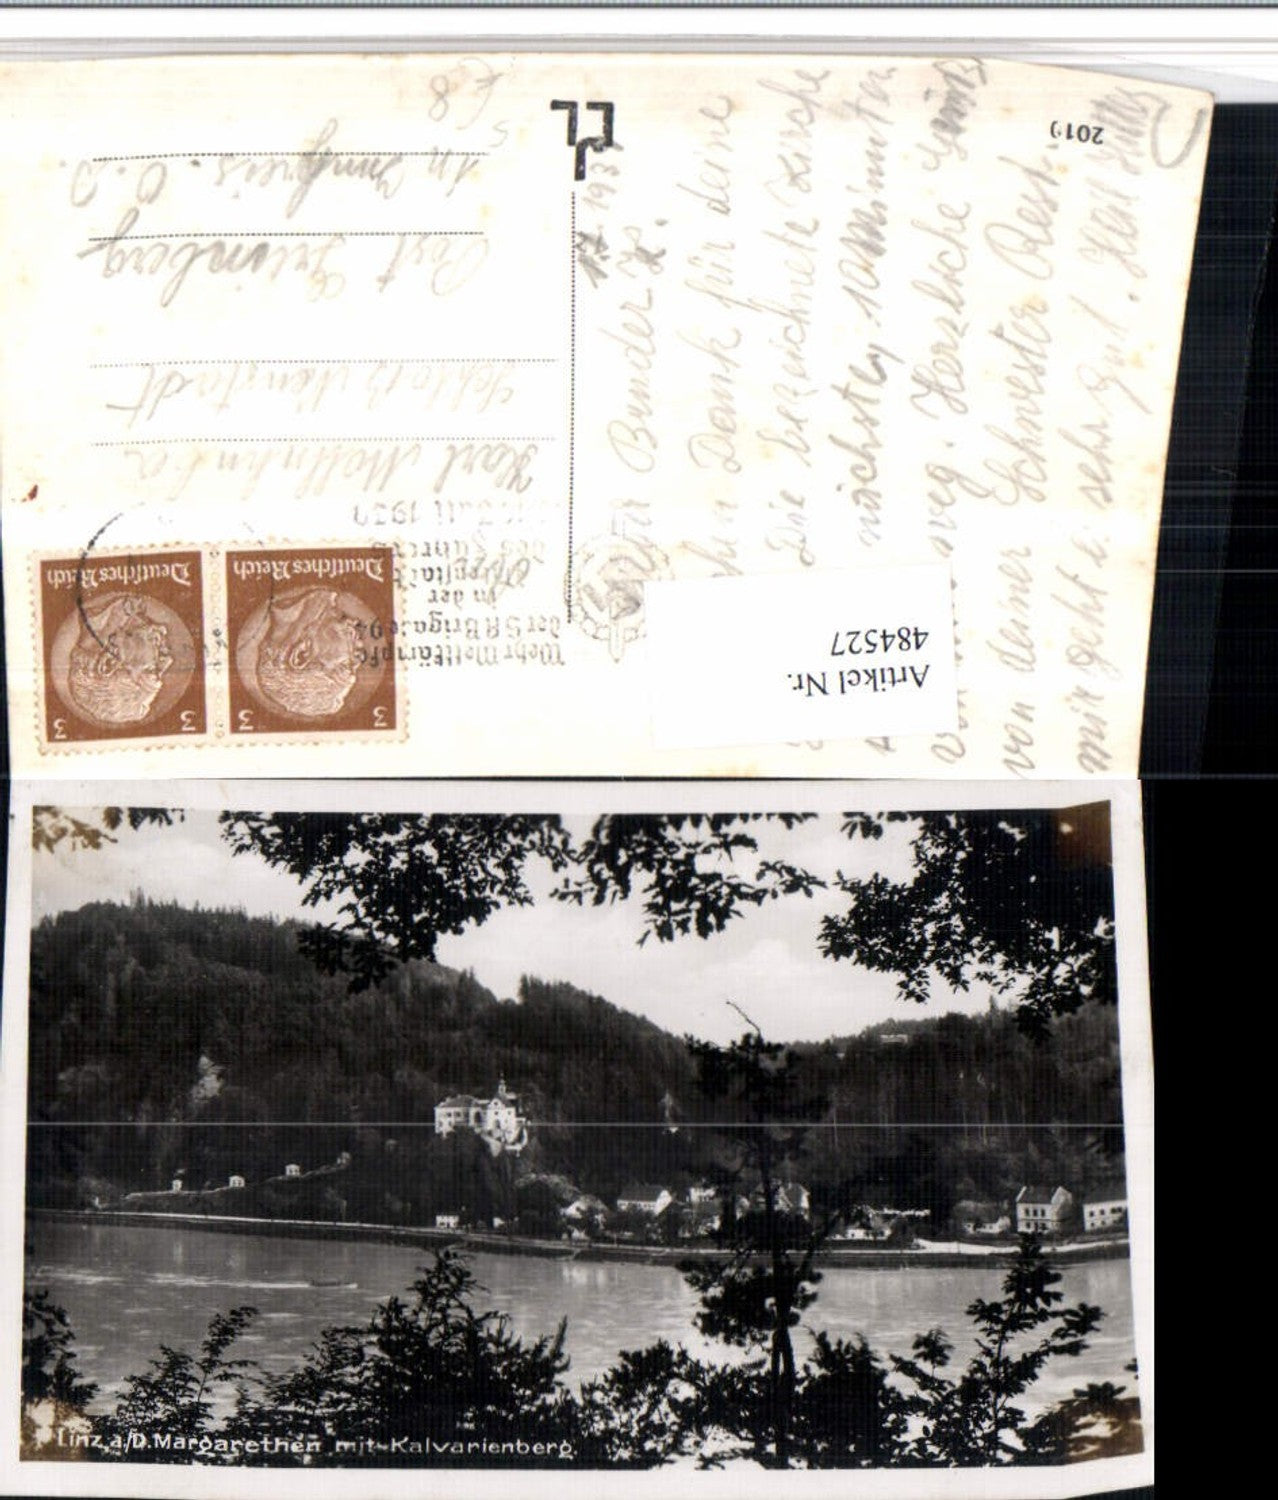 2019
Karl
Schloß Neustadt
Post Grünberg
in Innkreis. O.D.
17. 1939
Bruder K.
Dank für deine
Die bezeichnete Kirche
nächsten, 10 Minuten
weg. Herzliche Grüße
von deiner Schwester Resi.
mir geht es sehr gut. Heil Hitler
Wehr Wettkämpfe
der SA Brigade 94
in der
des Führers
Juli 1939
Deutsches Reich
3 3
Deutsches Reich
3 3
Artikel Nr.
484527
Linz a/D. Margarethen mit Kalvarienberg.